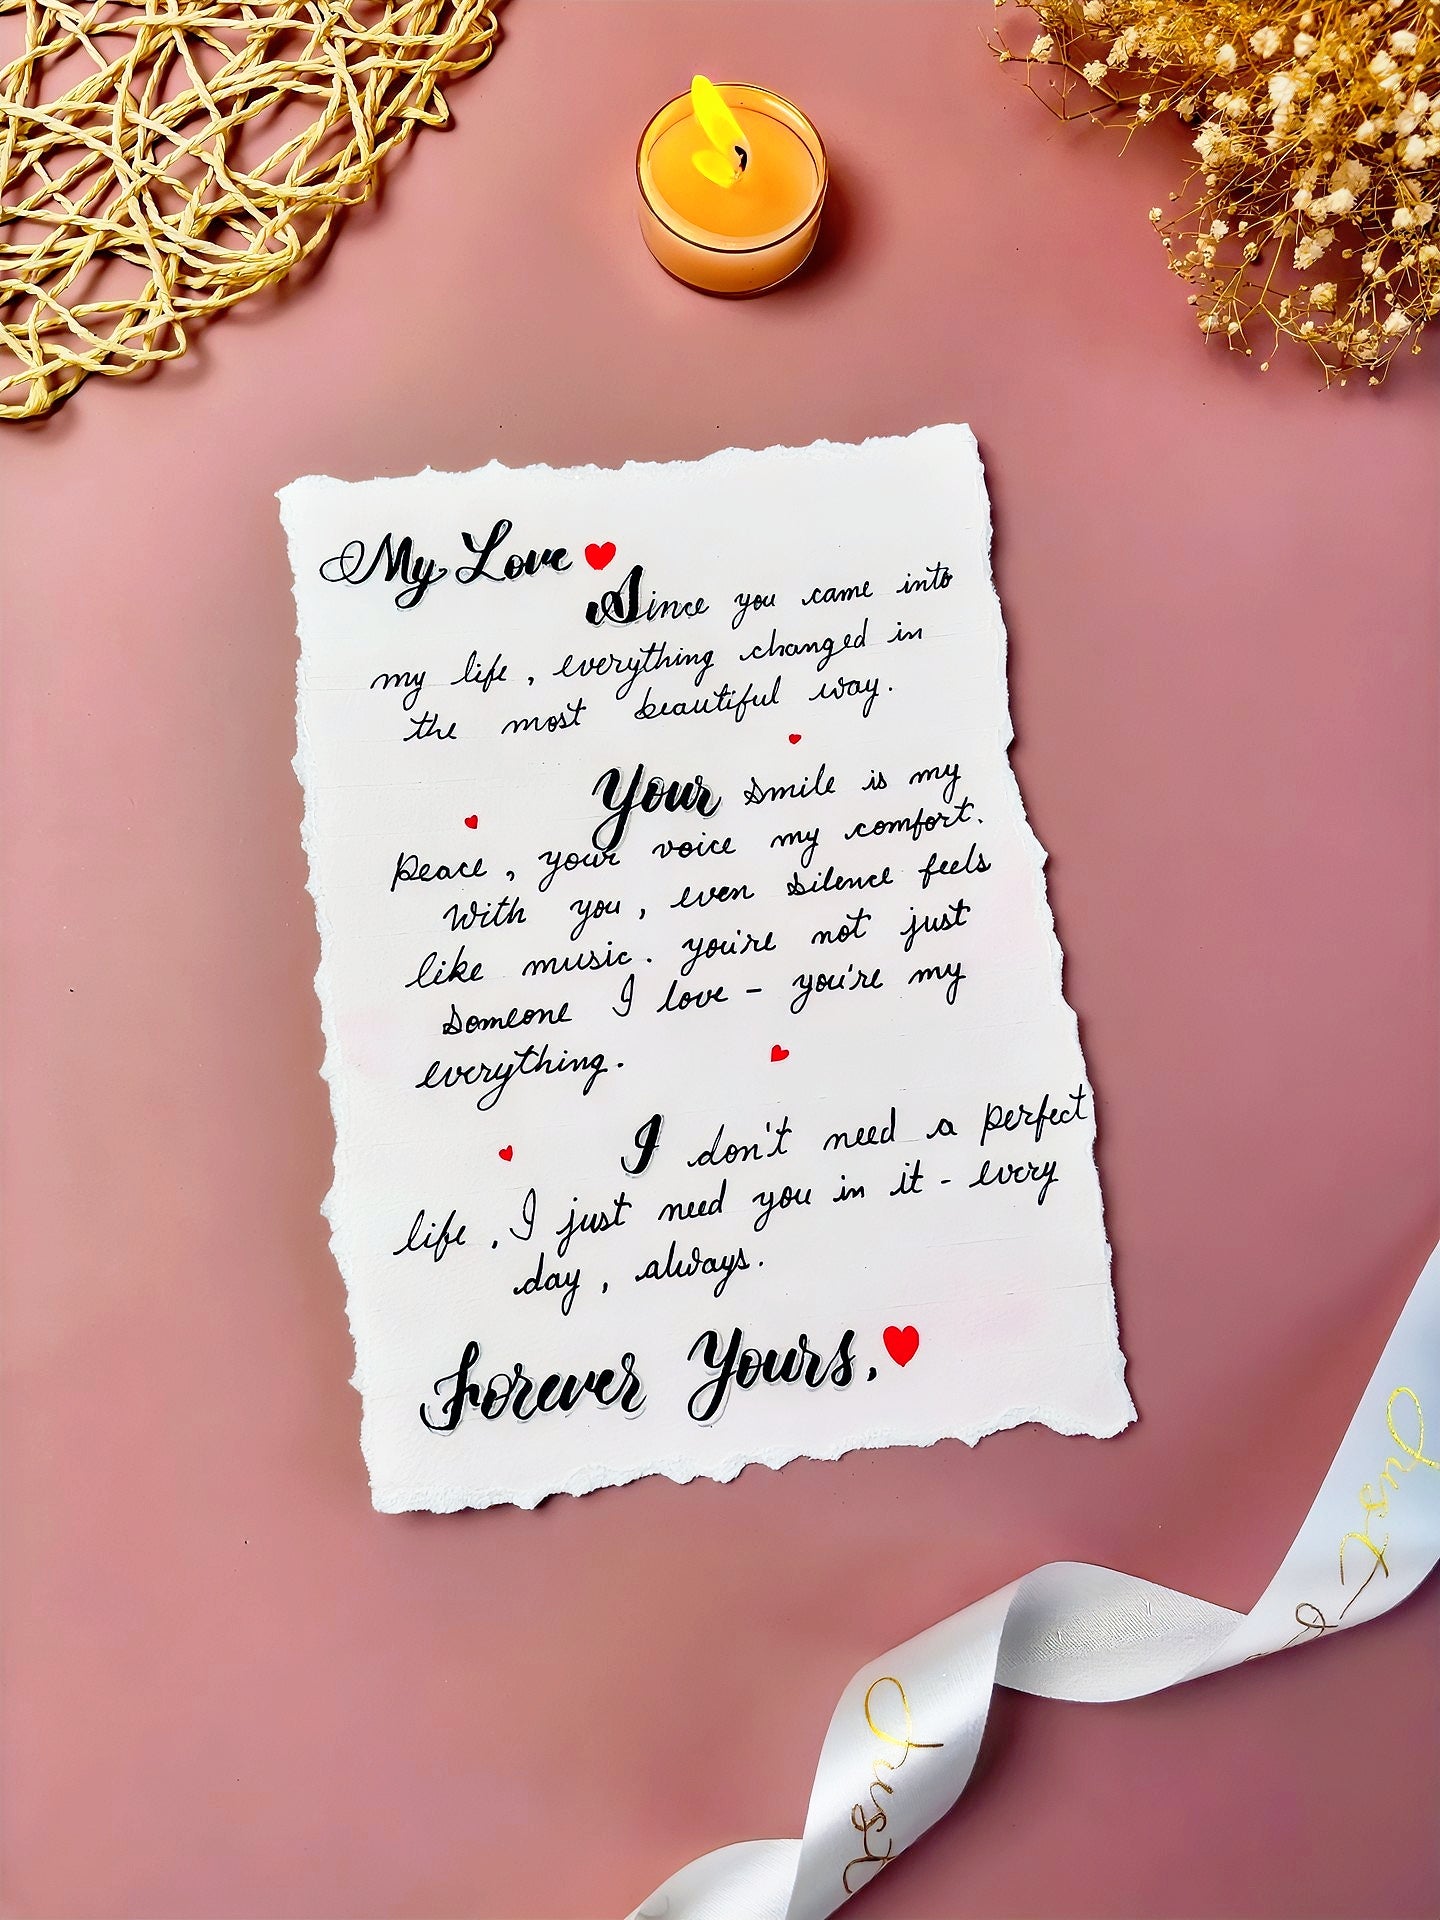 My Love
Since you came into
my life, everything changed in
the most beautiful way.
Your smile is my
peace, your voice my comfort.
With you, even silence feels
like music. you're not just
someone I love - you're my
everything.
I don't need a perfect
life, I just need you in it - every
day, always.
Forever Yours,
Just
Just